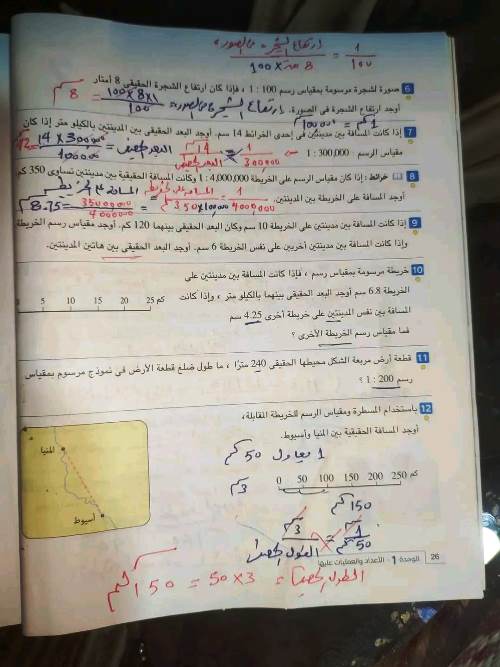 ارتفاع الشجرة فى الصورة / 8 م × 100 = 1 / 100
6 صورة لشجرة مرسومة بمقياس رسم 100 : 1 ، فإذا كان ارتفاع الشجرة الحقيقى 8 أمتار
أوجد ارتفاع الشجرة فى الصورة.
ارتفاع الشجرة فى الصورة = 100×8×1 / 100 = 8 سم
1 كم = 100000 سم
7 إذا كانت المسافة بين مدينتين فى إحدى الخرائط 14 سم. أوجد البعد الحقيقى بين المدينتين بالكيلو متر إذا كان
مقياس الرسم 300,000 : 1
8 خرائط : إذا كان مقياس الرسم على الخريطة 4,000,000 : 1 وكانت المسافة الحقيقية بين مدينتين تساوى 350 كم
أوجد المسافة على الخريطة بين المدينتين.
9 إذا كانت المسافة بين مدينتين على الخريطة 10 سم وكان البعد الحقيقى بينهما 120 كم. أوجد مقياس رسم الخريطة
وإذا كانت المسافة بين مدينتين أخريين على نفس الخريطة 6 سم. أوجد البعد الحقيقى بين هاتين المدينتين.
10 خريطة مرسومة بمقياس رسم ، فإذا كانت المسافة بين مدينتين على
الخريطة 6.8 سم أوجد البعد الحقيقى بينهما بالكيلو متر ، وإذا كانت
المسافة بين نفس المدينتين على خريطة أخرى 4.25 سم
فما مقياس رسم الخريطة الأخرى ؟
0 5 10 15 20 25 كم
11 قطعة أرض مربعة الشكل محيطها الحقيقى 240 مترًا ، ما طول ضلع قطعة الأرض فى نموذج مرسوم بمقياس
رسم 200 : 1 ؟
12 باستخدام المسطرة ومقياس الرسم للخريطة المقابلة،
أوجد المسافة الحقيقية بين المنيا وأسيوط.
المنيا
أسيوط
1 يعادل 50 كم
0 50 100 150 200 250 كم
3 سم
150 كم
الطول الحقيقى = 3 × 50 = 150 كم
26 الوحدة 1 - الأعداد والعمليات عليها